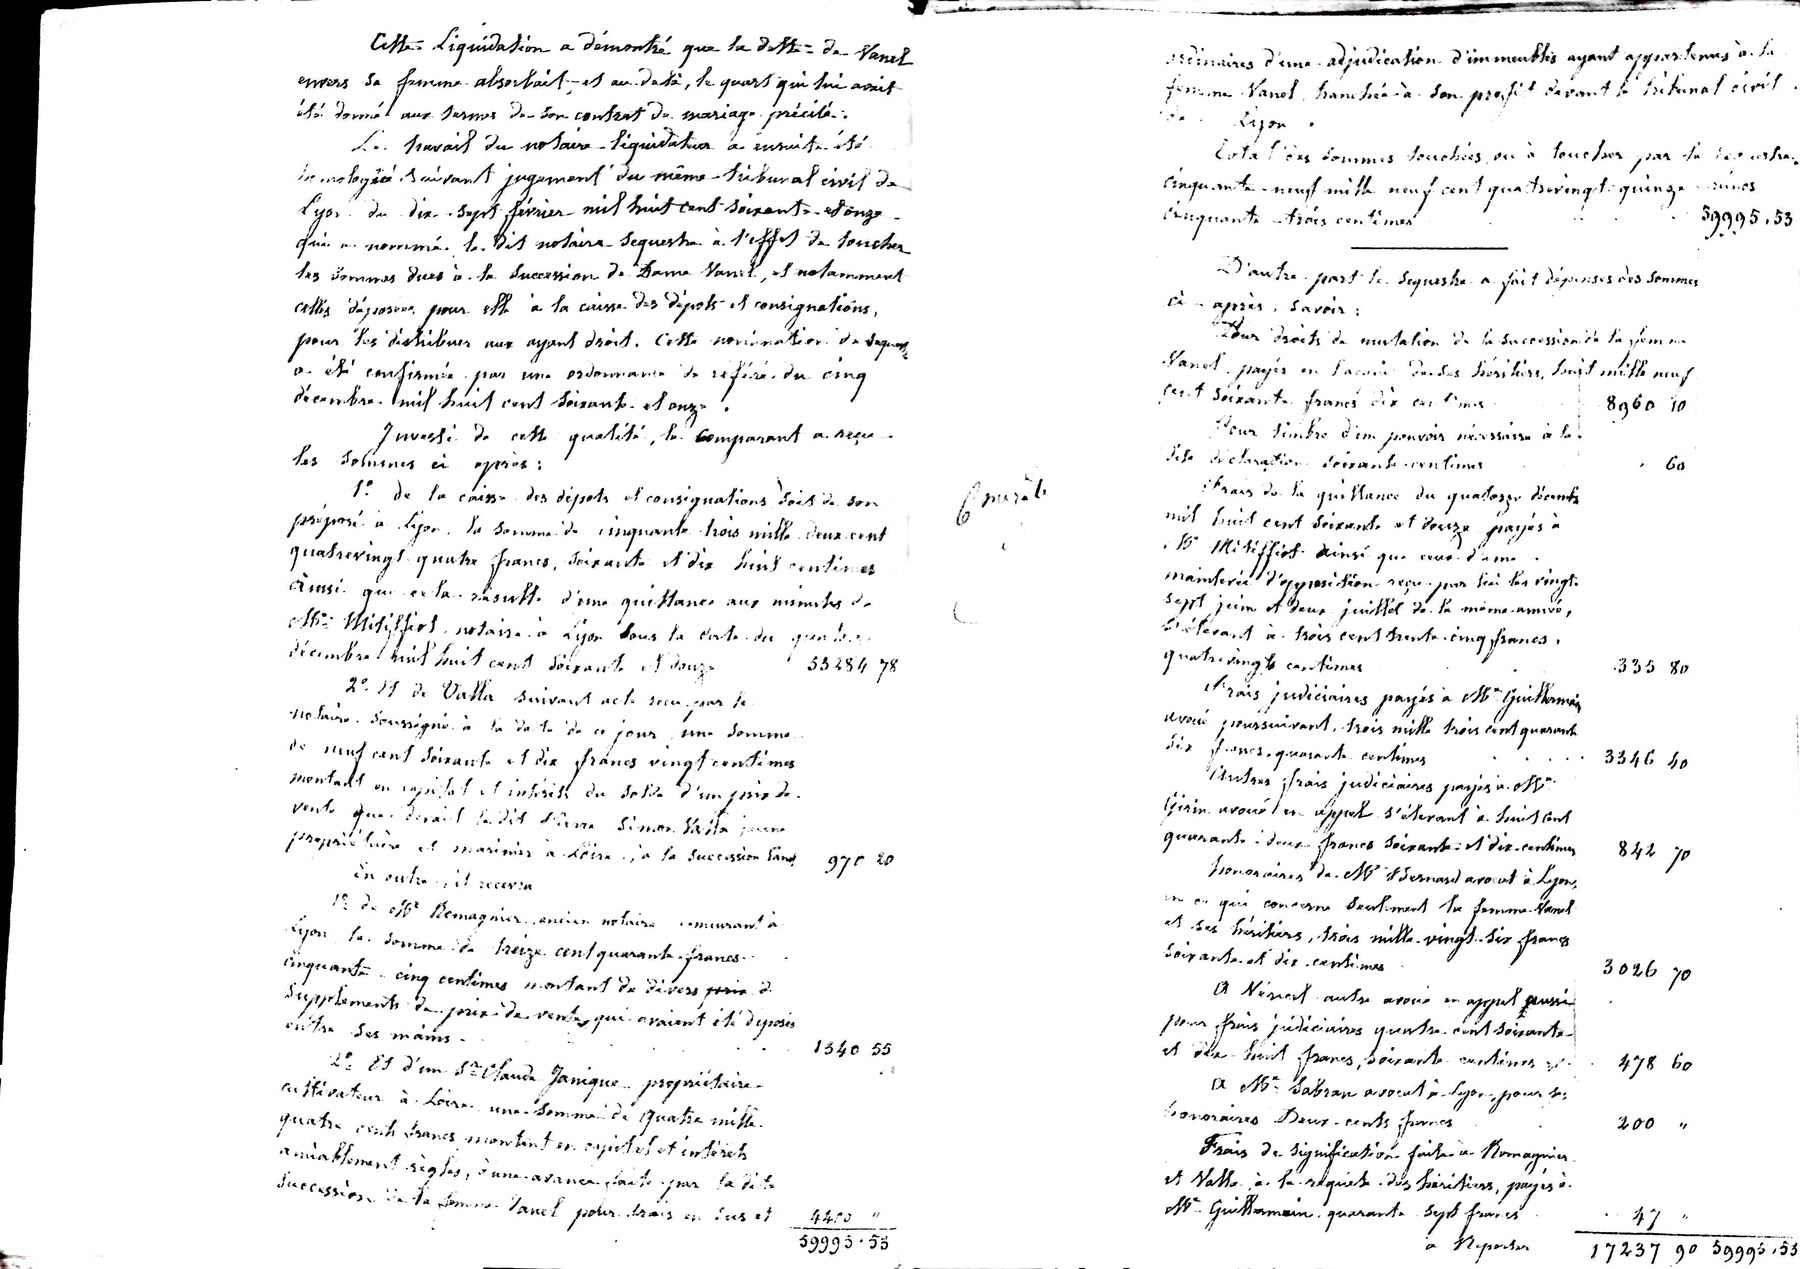 Cette liquidation a démontré que la dette de Vanel
envers sa femme absorbait, et au delà, le quart qui lui avait
été donné aux termes de son contrat de mariage précité.
Le travail du notaire liquidateur a ensuite été
homologué suivant jugement du même tribunal civil de
Lyon du dix-sept février mil huit cent soixante et onze
qui a nommé le dit notaire sequestre à l'effet de toucher
les sommes dues à la succession de Dame Vanel, et notamment
celles déposées pour elle à la caisse des dépots et consignations,
pour les distribuer aux ayant droit. Cette nomination de sequestre
a été confirmée par une ordonnance de référé du cinq
décembre mil huit cent soixante et onze.
Investi de cette qualité, le comparant a reçu
les sommes ci après :
1º de la caisse des dépots et consignations soit de son
préposé à Lyon la somme de cinquante trois mille deux cent
quatrevingt quatre francs, soixante et dix huit centimes
ainsi que cela résulte d'une quittance aux minutes de
Me Mitiffiot, notaire à Lyon sous la date du quatorze
décembre mil huit cent soixante et douze 53284 78
2º Et de Valla suivant acte reçu par le
notaire soussigné à la date de ce jour une somme
de neuf cent soixante et dix francs vingt centimes
montant en capital et intérêts du solde d'un prix de
vente que devait le dit Pierre Simon Valla jeune
propriétaire et marinier à Loire, à la succession Vanel 970 20
En outre, il recevra
1º de Me Romagnier ancien notaire demeurant à
Lyon la somme de treize cent quarante francs
cinquante-cinq centimes montant de divers prix d
suppléments de prix de vente qui avaient été déposés
entre ses mains. 1340 55
2º Et d'un Sr Claude Janique propriétaire
cultivateur à Loire une somme de quatre mille
quatre cents francs montant en capital et intérêts
amiablement réglés, d'une avance faite par la dite
succession de la femme Vanel pour frais en sus et 4400 "
59995.53
6 mrôle
ordinaires d'une adjudication d'immeubles ayant appartenus à la
femme Vanel, tranchée à son profit devant le tribunal civil
de Lyon.
Total des sommes touchées ou à toucher par le sequestre
cinquante-neuf mille neuf cent quatrevingt quinze francs
cinquante-trois centimes 59995.53
D'autre part le sequestre a fait dépenses des sommes
ci-après, savoir :
Pour droits de mutation de la succession de la femme
Vanel payés en l'acquit de ses héritiers, huit mille neuf
cent soixante francs dix centimes 8960 10
Pour timbre d'un pouvoir nécessaire à la
dite déclaration soixante centimes " 60
Frais de la quittance du quatorze décembre
mil huit cent soixante et douze payés à
Me Mitiffiot ainsi que ceux d'une
mainlevée d'opposition reçue par lui les vingt
sept juin et deux juillet de la même année,
s'élevant à trois cent trente cinq francs,
quatrevingts centimes 335 80
Frais judiciaires payés à Me Guillermain
avoué poursuivant, trois mille trois cent quarante
six francs quarante centimes 3346 40
Autres frais judiciaires payés à Me
Girin avoué en appel s'élevant à huit cent
quarante-deux francs soixante et dix centimes 842 70
honoraires de Me Bernard avocat à Lyon,
en ce qui concerne seulement la femme Vanel
et ses héritiers, trois mille vingt-six francs
soixante et dix centimes 3026 70
A autre avoué en appel
pour frais judiciaires quatre cent soixante
et dix-huit francs, soixante centimes 478 60
A Me Sabran avocat à Lyon, pour ses
honoraires Deux cents francs 200 "
Frais de signification faite à Romagnier
et Valla à la requête des héritiers, payés à
Me Guillermain quarante sept francs 47 "
a Reporter 17237 90 59995.53